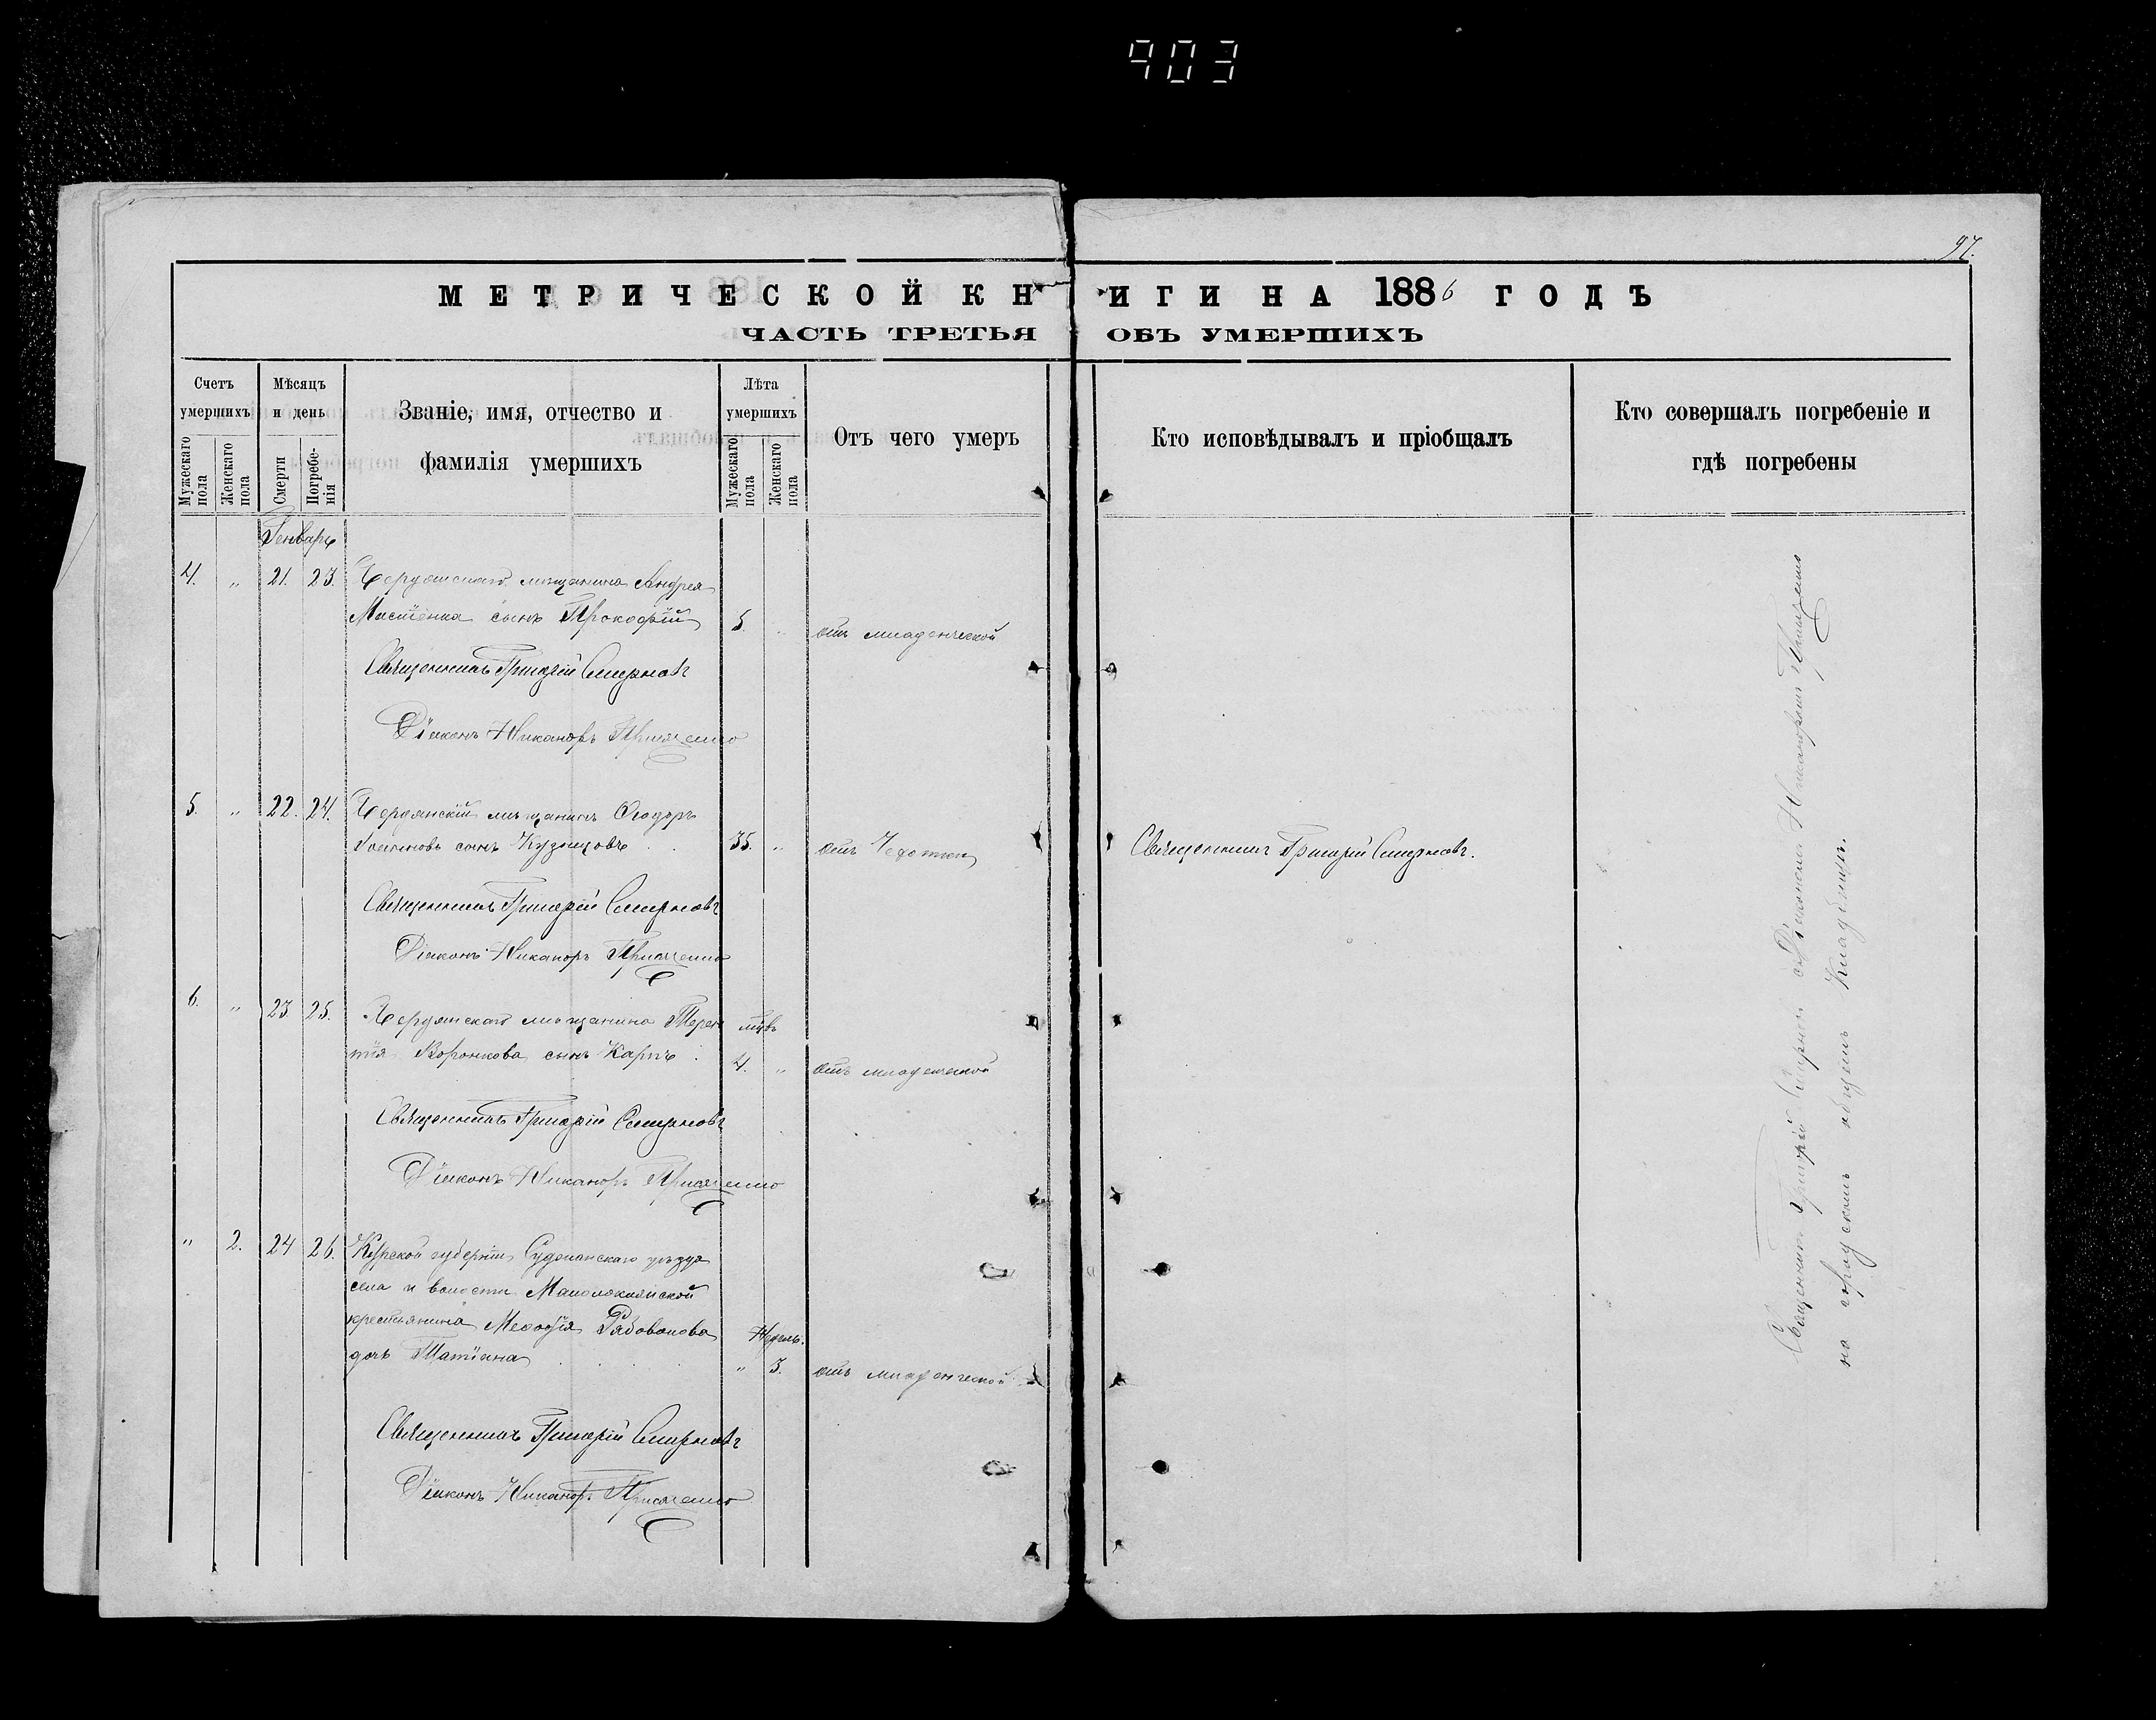 903
97.
МЕТРИЧЕСКОЙ КНИГИ НА 1886 ГОДЪ
ЧАСТЬ ТРЕТЬЯ ОБЪ УМЕРШИХЪ
Счетъ умершихъ
Мужескаго пола
Женскаго пола
Мѣсяцъ и день
Смерти
Погребенія
Званіе, имя, отчество и
фамилія умершихъ
Лѣта умершихъ
Мужескаго пола
Женскаго пола
Отъ чего умеръ
Кто исповѣдывалъ и пріобщалъ
Кто совершалъ погребеніе и
гдѣ погребены
Генварь
4. „ 21. 23. мѣщанина Андрея
сынъ Прокофій 5. „ отъ младенческой
Священникъ Григорій Смирновъ
Діаконъ Никаноръ
5. „ 22. 24. Бердянскій мѣщанинъ Ѳеодоръ
сынъ Кузнецовъ 35. „ отъ Чахотки Священникъ Григорій Смирновъ.
Священникъ Григорій Смирновъ
Діаконъ Никаноръ
6. „ 23. 25. Бердянскаго мѣщанина Терен мцвъ
тія Воронкова сынъ Карпъ 4. „ отъ младенческой
Священникъ Григорій Смирновъ
Діаконъ Никаноръ
„ 2. 24 26. Курской губерніи, уѣзда
села и волости
крестьянина Меѳодія Недель.
дочь Татіана „ 3. отъ младенческой
Священникъ Григорій Смирновъ
Діаконъ Никаноръ
Священникъ Григорій Смирновъ съ Діакономъ Никаноромъ
на градскомъ общемъ Кладбищѣ.